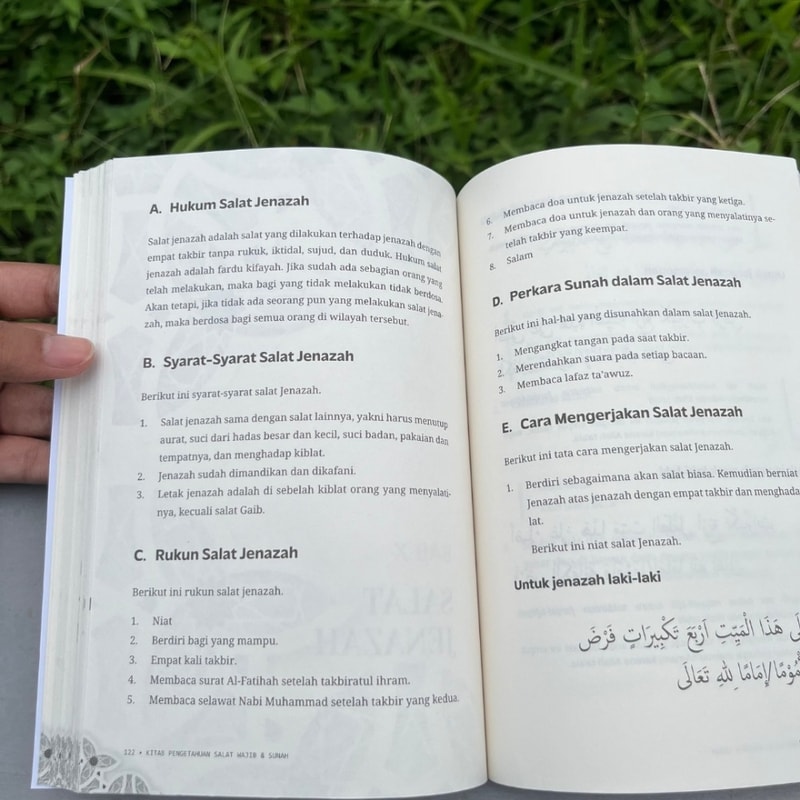 A. Hukum Salat Jenazah
Salat jenazah adalah salat yang dilakukan terhadap jenazah dengan
empat takbir tanpa rukuk, iktidal, sujud, dan duduk. Hukum salat
jenazah adalah fardu kifayah. Jika sudah ada sebagian orang yang
telah melakukan, maka bagi yang tidak melakukan tidak berdosa.
Akan tetapi, jika tidak ada seorang pun yang melakukan salat jena-
zah, maka berdosa bagi semua orang di wilayah tersebut.
B. Syarat-Syarat Salat Jenazah
Berikut ini syarat-syarat salat Jenazah.
1. Salat jenazah sama dengan salat lainnya, yakni harus menutup
aurat, suci dari hadas besar dan kecil, suci badan, pakaian dan
tempatnya, dan menghadap kiblat.
2. Jenazah sudah dimandikan dan dikafani.
3. Letak jenazah adalah di sebelah kiblat orang yang menyalati-
nya, kecuali salat Gaib.
C. Rukun Salat Jenazah
Berikut ini rukun salat jenazah.
1. Niat
2. Berdiri bagi yang mampu.
3. Empat kali takbir.
4. Membaca surat Al-Fatihah setelah takbiratul ihram.
5. Membaca selawat Nabi Muhammad setelah takbir yang kedua.
122 • KITAB PENGETAHUAN SALAT WAJIB & SUNAH
6. Membaca doa untuk jenazah setelah takbir yang ketiga.
7. Membaca doa untuk jenazah dan orang yang menyalatinya se-
telah takbir yang keempat.
8. Salam
D. Perkara Sunah dalam Salat Jenazah
Berikut ini hal-hal yang disunahkan dalam salat jenazah.
1. Mengangkat tangan pada saat takbir.
2. Merendahkan suara pada setiap bacaan.
3. Membaca lafaz ta'awuz.
E. Cara Mengerjakan Salat Jenazah
Berikut ini tata cara mengerjakan salat jenazah.
1. Berdiri sebagaimana akan salat biasa. Kemudian berniat
Jenazah atas jenazah dengan empat takbir dan menghada
lat.
Berikut ini niat salat Jenazah.
Untuk jenazah laki-laki
هَذَا الْمَيِّتِ اَرْبَعَ تَكْبِيرَاتٍ فَرْضَ
إِمَامًا لِلّٰهِ تَعَالَى